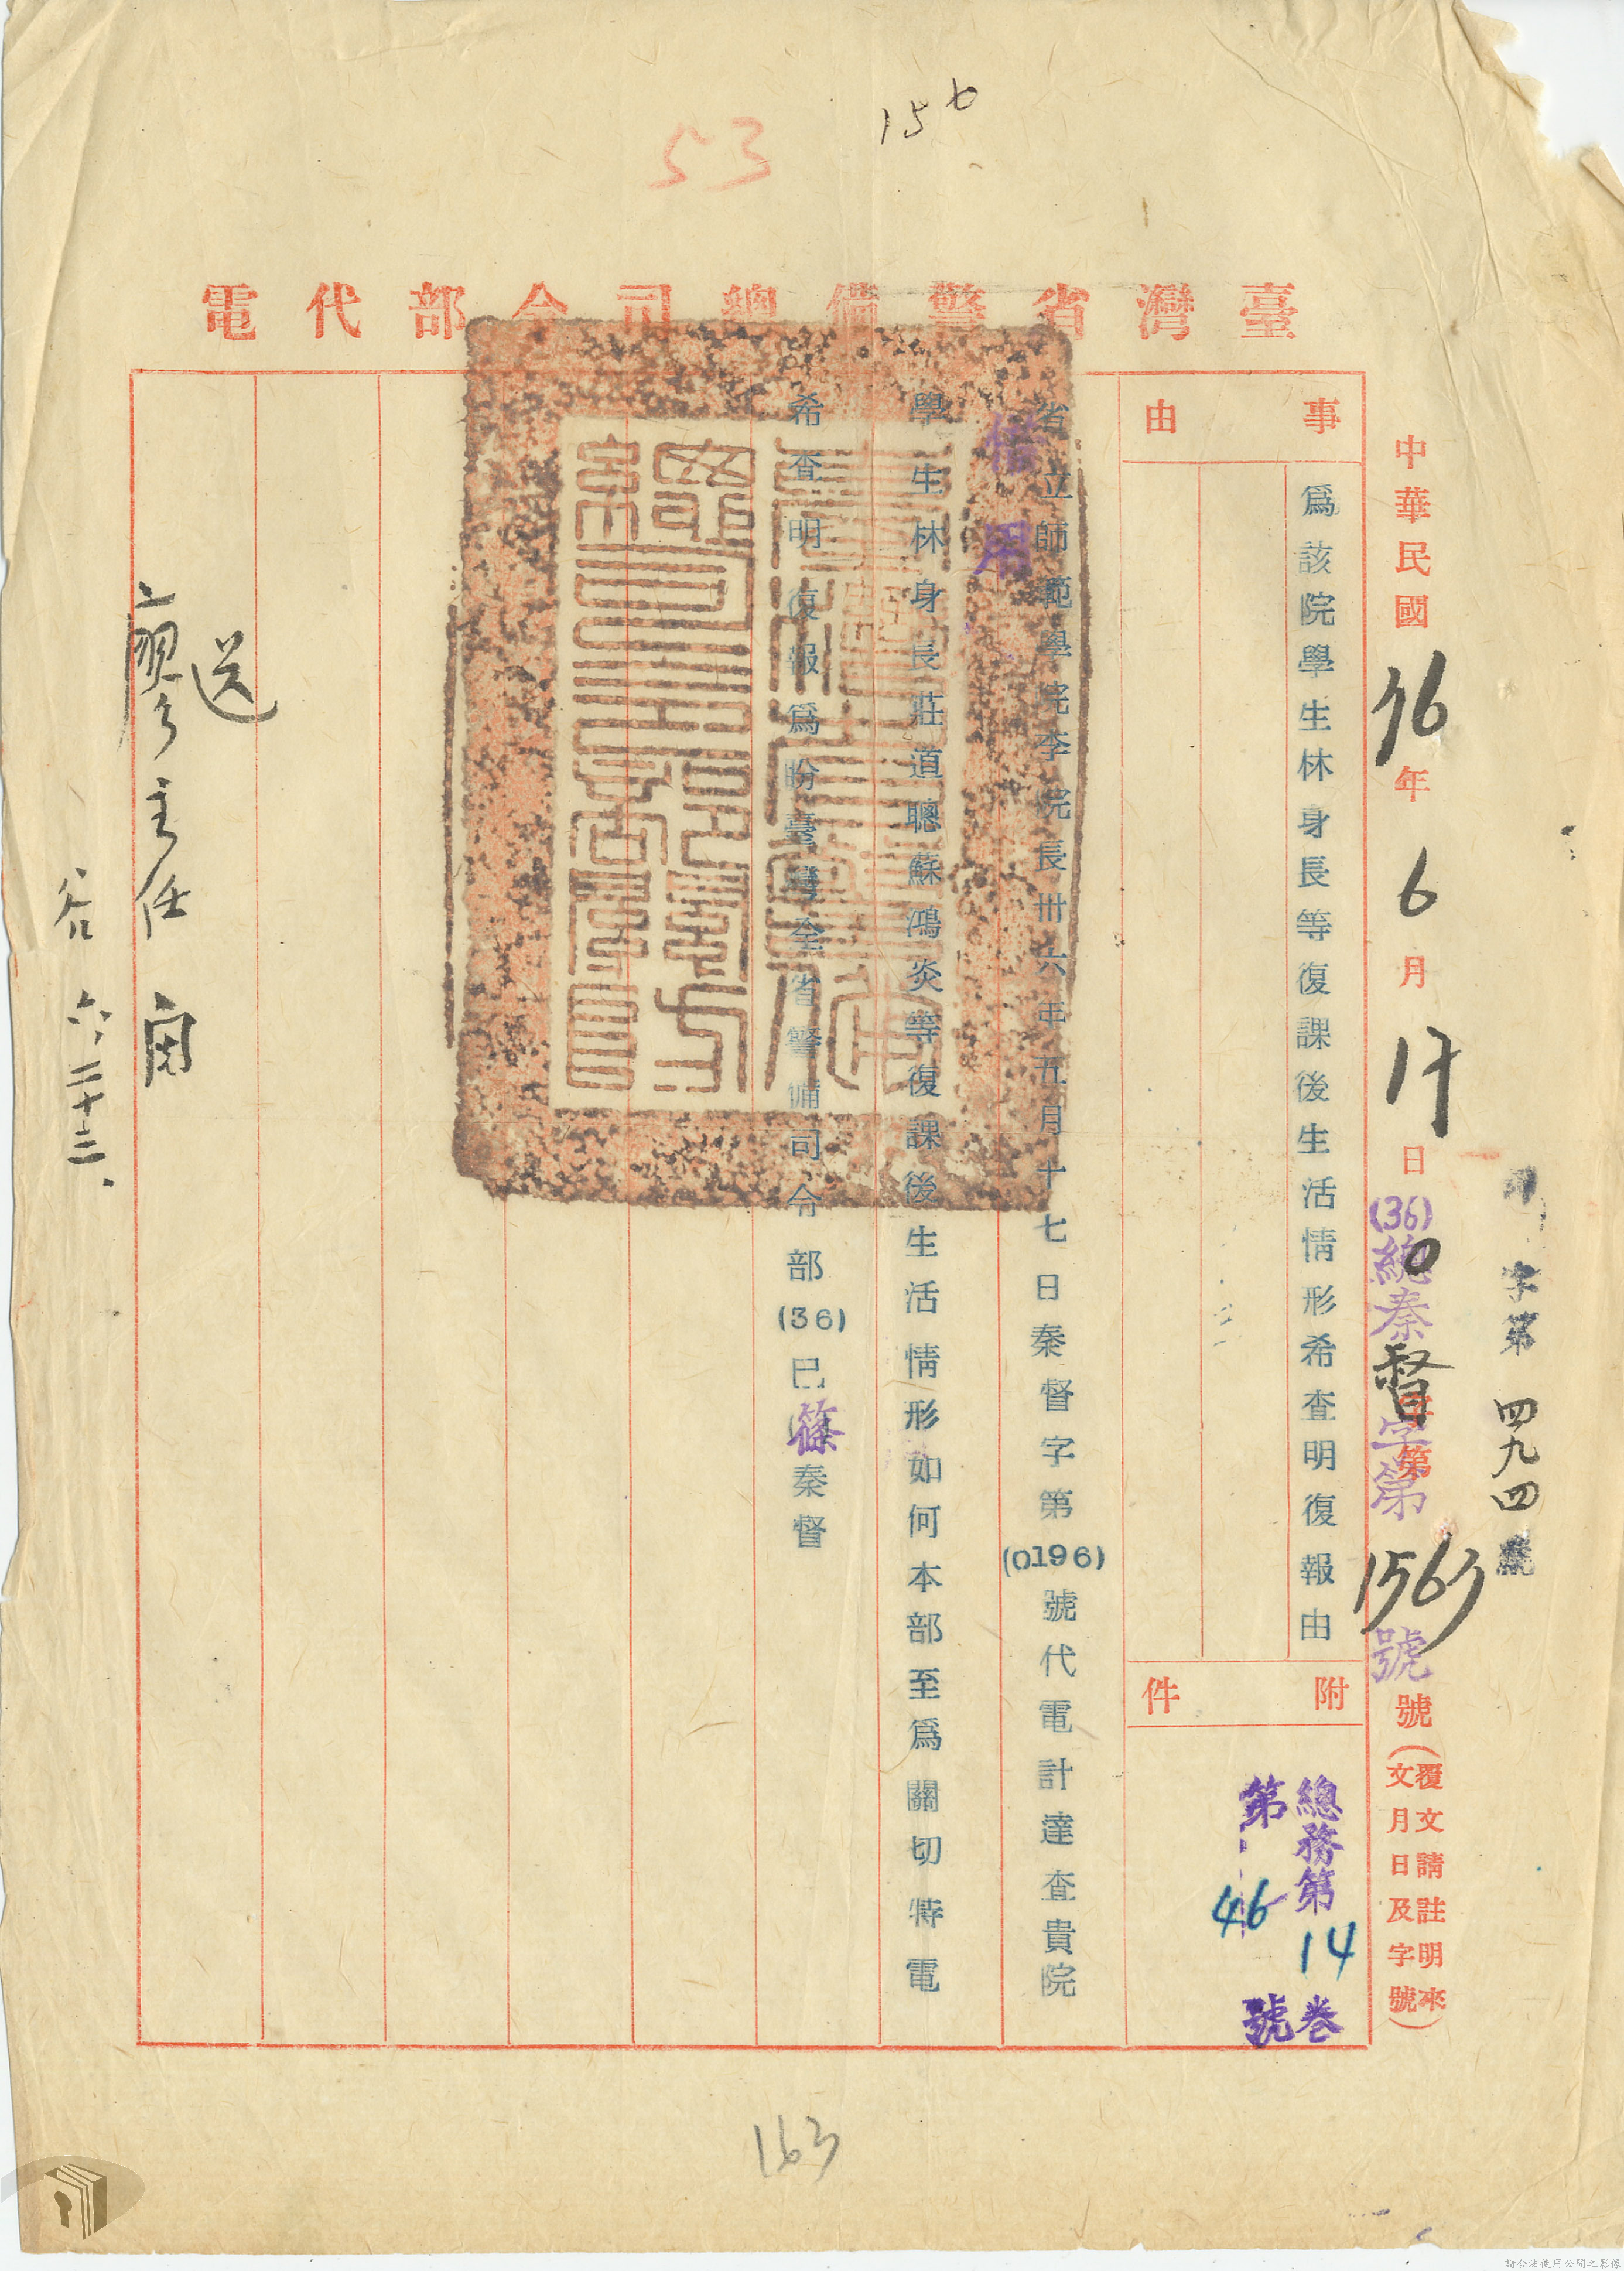 156
53
臺灣省警備總司令部代電
字第四九四號
中華民國36年6月17日
(36)總秦督字第1563號
號(覆文請註明來文月日及字號)
事由
為該院學生林身長等復課後生活情形希查明復報由
附件
總務第14卷
第46號
借用
省立師範學院李院長卅六年五月十七日秦督字第(0196)號代電計達查貴院
學生林身長莊道聰蘇鴻炎等復課後生活情形如何本部至為關切特電
希查明復報為盼臺灣全省警備司令部(36)巳篠秦督
送
廖主任
谷 六、二十三、
163
請合法使用公開之影像